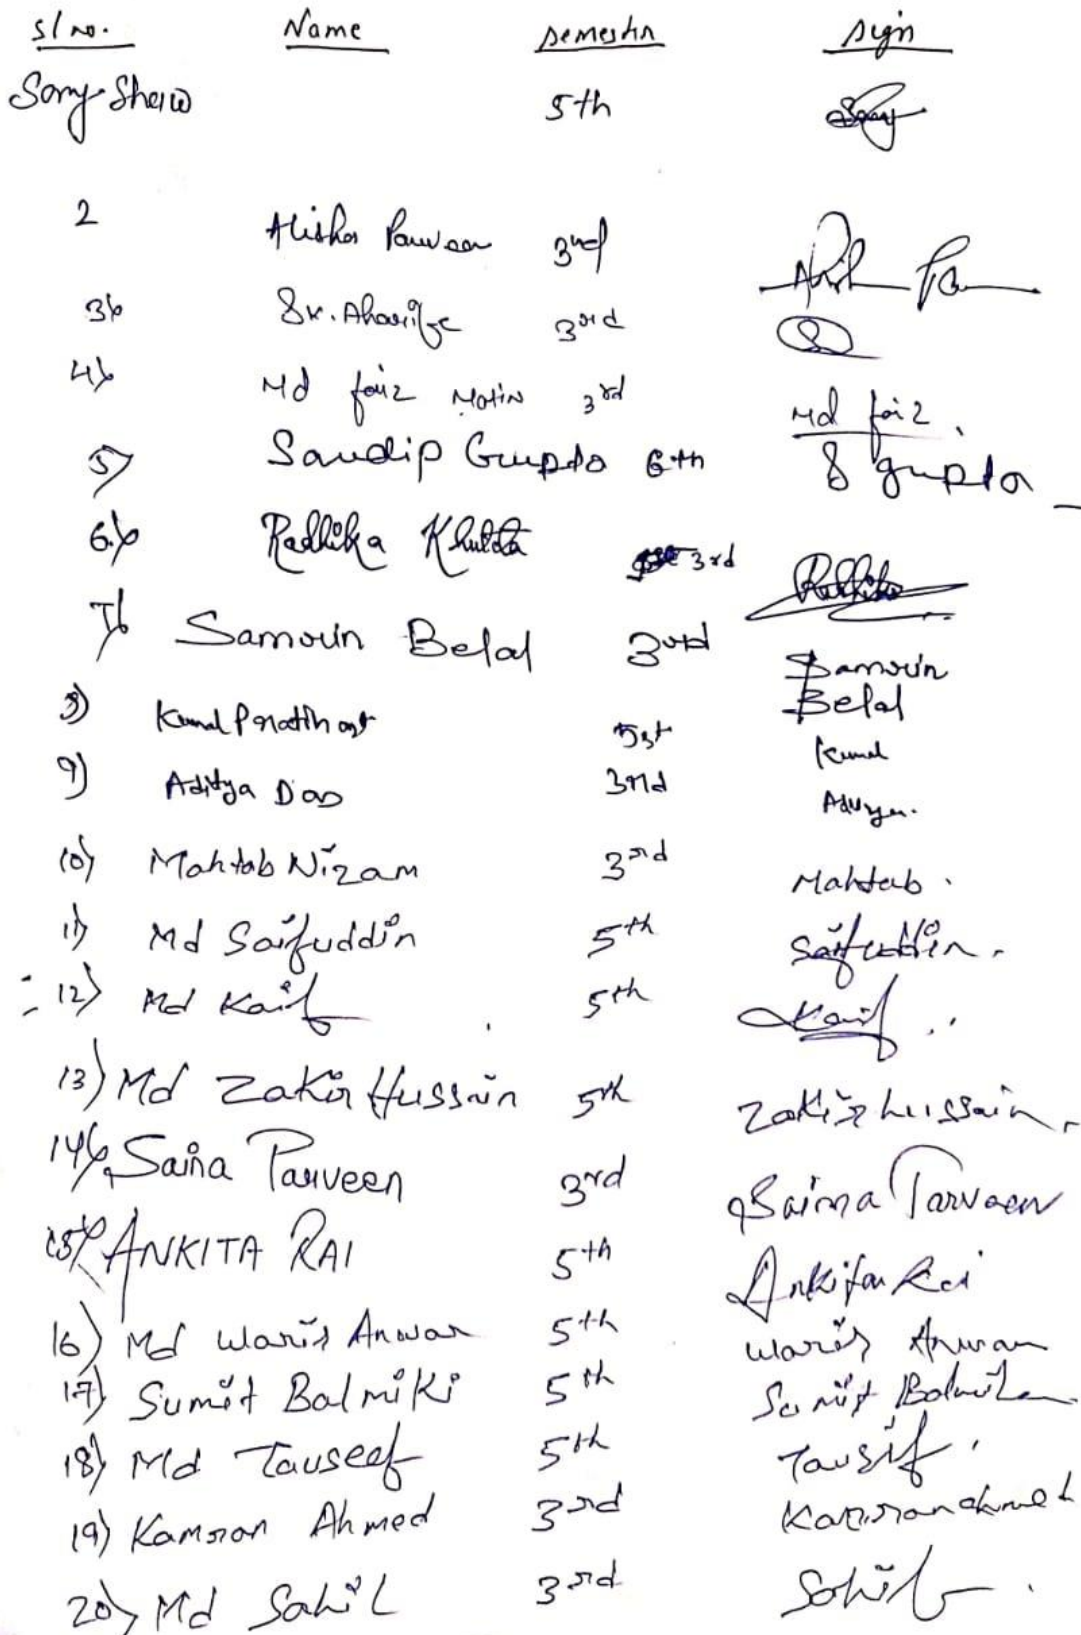 Sl no. Name semester sign
Sony Shaw 5th Sony
2 Alisha Parveen 3rd
3) Sk. 3rd
4) Md faiz Matin 3rd Md faiz.
5) Sandip Gupta 6th S gupta
6) Radhika 3rd Radhika
7) Samrin Belal 3rd Samrin Belal
8) Kunal Pratihar Kunal
9) Aditya Das 3rd Aditya.
10) Mahtab Nizam 3rd Mahtab.
11) Md Saifuddin 5th Saifuddin.
12) Md Kaif 5th Kaif
13) Md Zakir Hussain 5th Zakir hussain.
14) Saina Parveen 3rd Saima Parveen
15) ANKITA RAI 5th Ankita Rai
16) Md Waris Anwar 5th Waris Anwar
17) Sumit Balmiki 5th Sumit Balmiki
18) Md Tauseef 5th Tausif.
19) Kamran Ahmed 3rd Kamran ahmed
20) Md Sahil 3rd Sahil